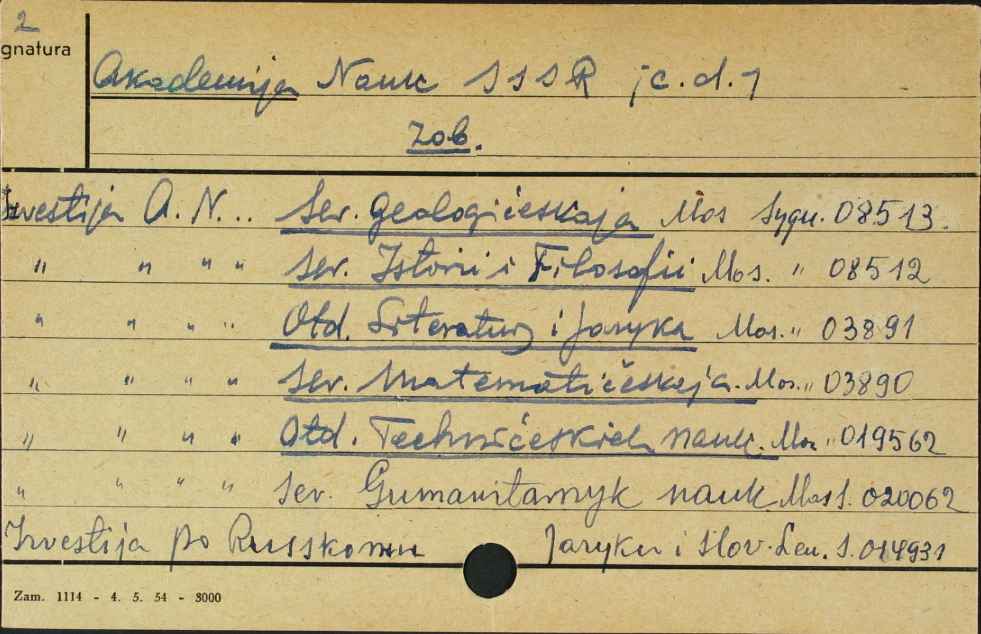 2
gnatura
Akademija Nauk SSSR /c.d.1
Zob.
Izvestija A. N... Ser. Geologičeskaja Mos Sygn. 08513.
" " " " Ser. Istorii i Filosofii Mos. " 08512
" " " " Otd. Literatury i Jazyka Mos. " 03891
" " " " Ser. Matematičeskaja. Mos. " 03890
" " " " Otd. Techničeskich nauk. Mos " 019562
" " " " Ser. Gumanitarnyk nauk Mos S. 020062
Izvestija po Russkomu Jazyku i Slov. Len. S. 014931
Zam. 1114 - 4. 5. 54 - 3000